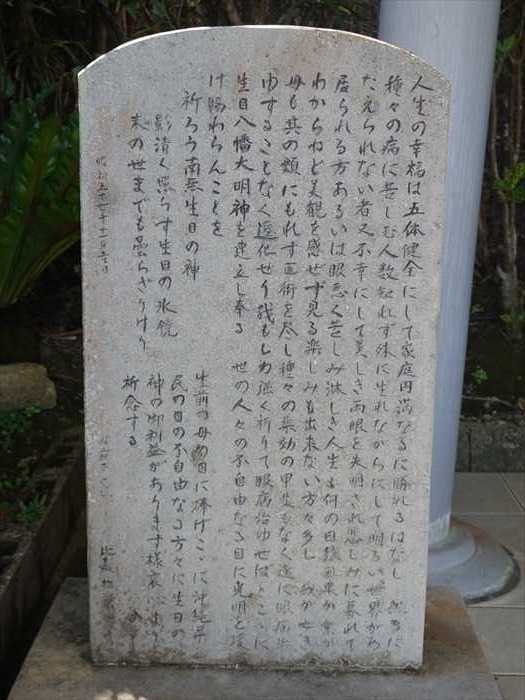 人生の幸福は五体健全にして家庭円満なるに勝れるはなし 然るに
種々の病に苦しむ人数知れず殊に生れながらにして明るい世界がみ
たえられない者又不幸にして美しき両眼を失明され悲しみに暮れて
居られる方あるいは眼悪く苦しみ淋しき人生
わからねど美観を感せず見る楽しみも出来ない方々多し 我が亡き
母も其の類にもれず医術を尽し種々の薬効の甲斐もなく遂に眼病治
ゆすることなく逝化せり 我もしわ強く祈りて眼病治ゆせばここに
生目八幡大明神を建立し奉る 世の人々の不自由なる目に光明を授
け賜わらんことを
祈ろう南無生目の神
影清く照らす生目の水鏡
末の世までも曇らざりけり
生前の母の目に捧げここに沖縄県
民の目の不自由なる方々に生目の
神の御利益があります様衷心より
祈念する
昭和五十七年十一月吉日